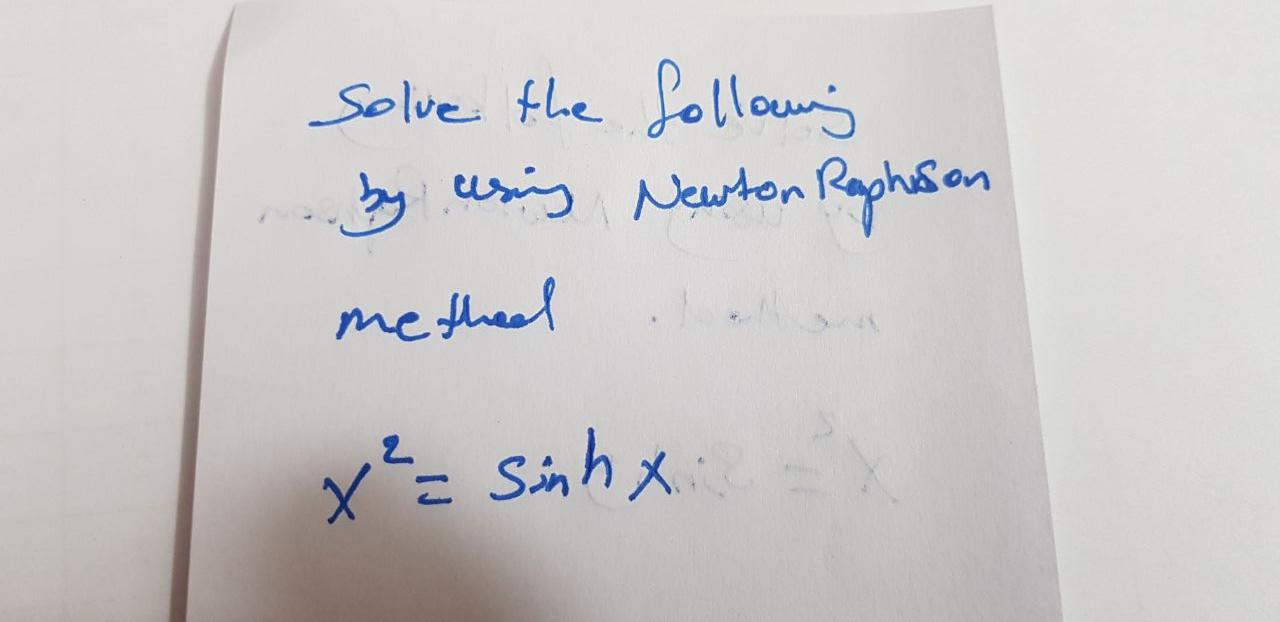 Solve the following
by using Newton Raphson
method
x² = sinh x